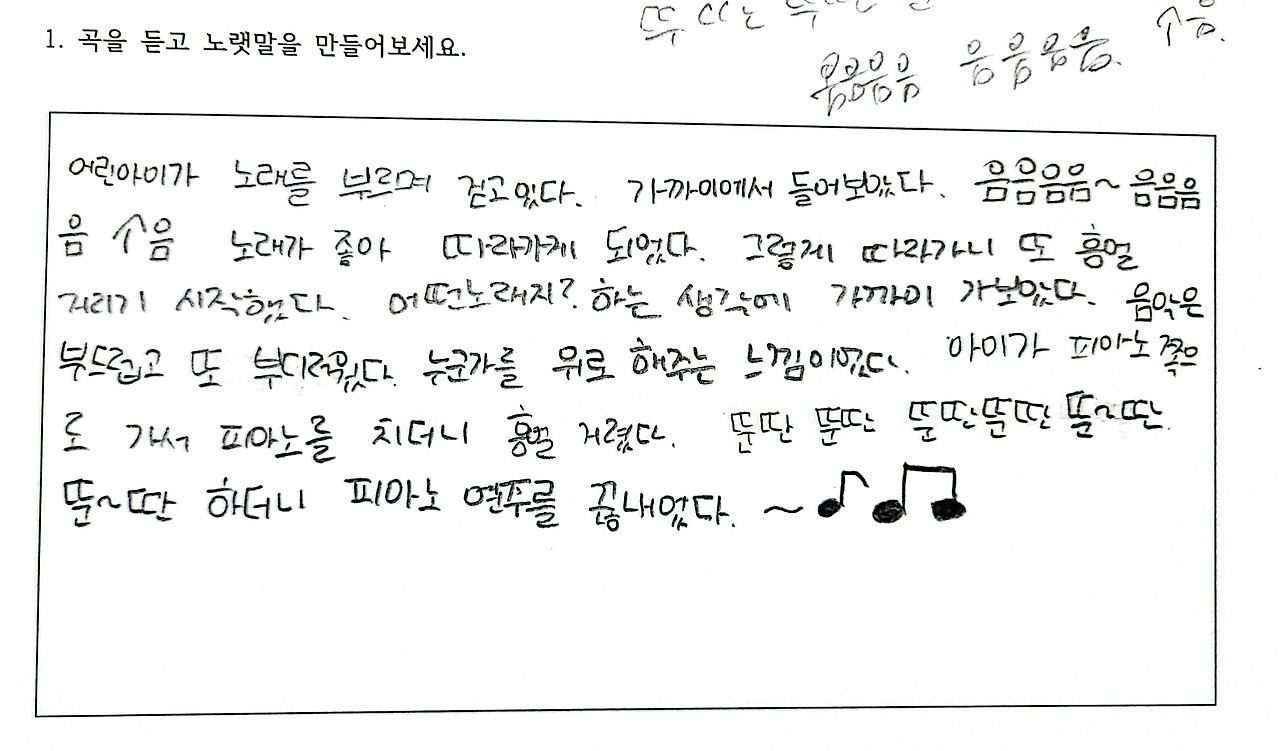 음.
1. 곡을 듣고 노랫말을 만들어보세요.
음음음음 음음음음.
어린아이가 노래를 부르며 걷고있다. 가까이에서 들어보았다. 음음음음~음음음
음 음 노래가 좋아 따라가게 되었다. 그렇게 따라가니 또 흥얼
거리기 시작했다. 어떤노래지? 하는 생각에 가까이 가보았다. 음악은
부드럽고 또 부디러웠다. 누군가를 위로 해주는 느낌이었다. 아이가 피아노 쪽으
로 가서 피아노를 치더니 흥얼 거렸다. 뚠딴 뚠딴 뚠딴뚠딴 뚠~딴.
뚠~딴 하더니 피아노 연주를 끝내었다. ~